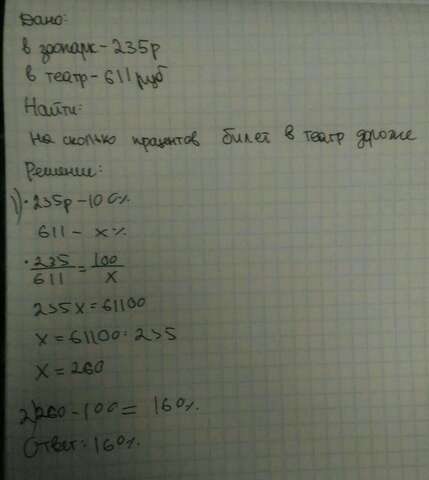 Дано:
в зоопарк - 235р
в театр - 611 руб
Найти:
На сколько процентов билет в театр дороже
Решение:
1) • 235р - 100%
611 - х%
• 235/611 = 100/х
235х = 61100
х = 61100 : 235
х = 260
2) 260 - 100 = 160%.
Ответ: 160%.